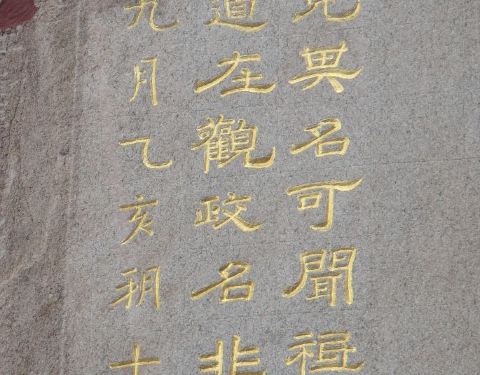 異名可聞
道在觀政名非
九月乙亥朔十